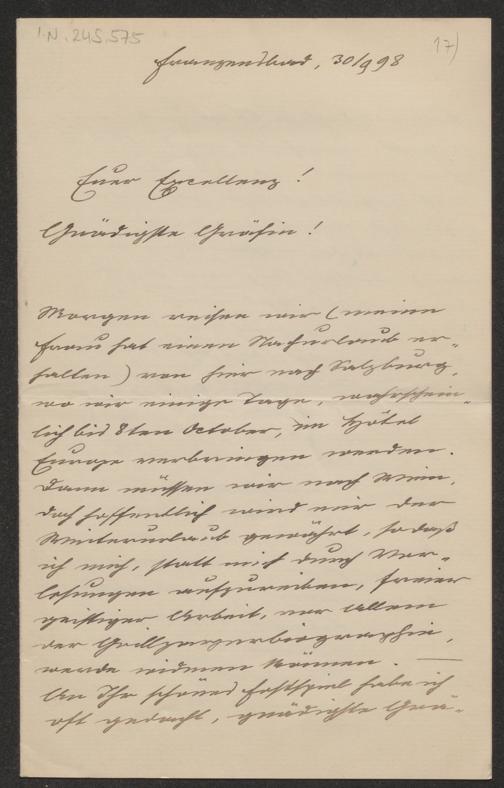 I.N. 245.575
17)
Franzensbad, 30/9 98
Euer Excellenz!
Gnädigste Gräfin!
Morgen reisen wir (meine
Frau hat einen Nachurlaub er-
halten) von hier nach Salzburg,
wo wir einige Tage, wahrschein-
lich bis 8ten October, im Hôtel
Europe verbringen werden.
Dann müssen wir nach Wien,
doch hoffentlich wird mir der
Winterurlaub gewährt, so daß
ich mich, statt mich durch Vor-
lesungen aufzureiben, freier
geistiger Arbeit, vor Allem
der Grillparzerbiographie,
werde widmen können. —
An Ihr schönes Festspiel habe ich
oft gedacht, gnädigste Grä-